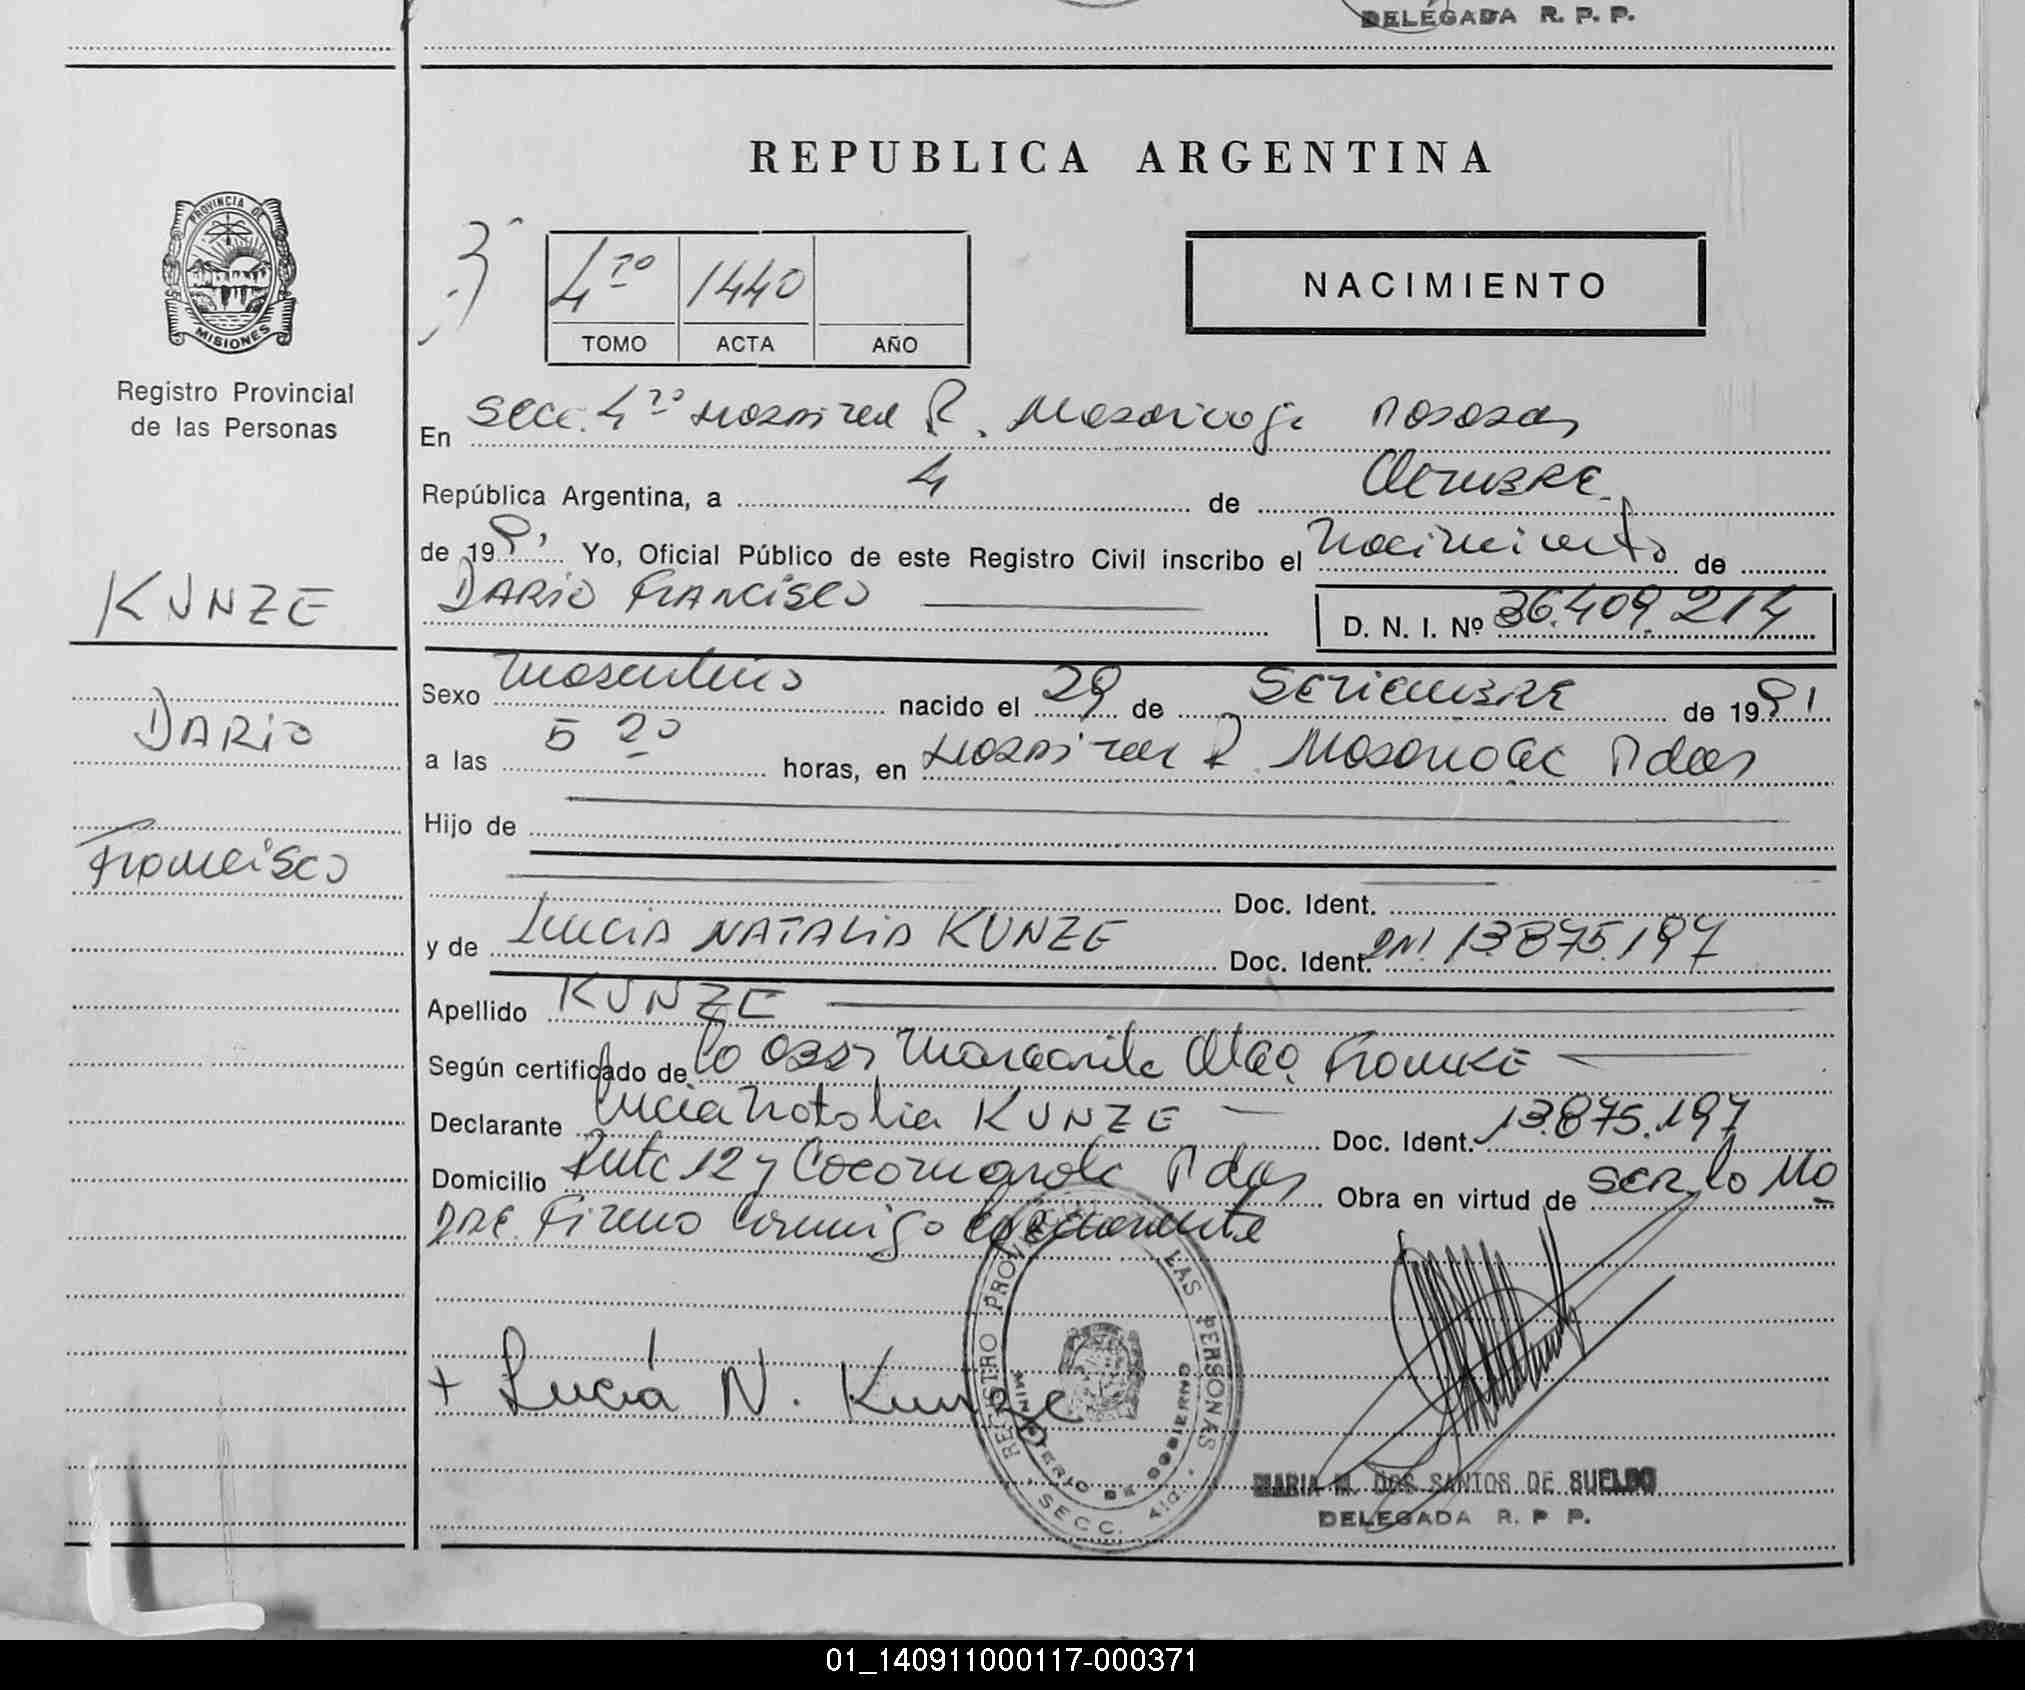 DELEGADA R. P. P.
REPUBLICA ARGENTINA
PROVINCIA DE
MISIONES
Registro Provincial
de las Personas
3
4to 1440
TOMO ACTA AÑO
NACIMIENTO
En Secc. 4to Hospital R. Madariaga Posadas
República Argentina, a 4 de Octubre
de 1991 Yo, Oficial Público de este Registro Civil inscribo el Nacimiento de
DARIO FRANCISCO D. N. I. Nº 36.409.214
KUNZE
DARIO
Francisco
Sexo Masculino nacido el 29 de SETIEMBRE de 1991
a las 5 20 horas, en Hospital R. Madariaga Pdas
Hijo de
Doc. Ident.
y de LUCIA NATALIA KUNZE Doc. Ident. DNI 13.875.197
Apellido KUNZE
Según certificado de la Obst Margarita Olga
Declarante Lucia Natalia KUNZE Doc. Ident. 13.875.197
Domicilio Ruta 12 y Cocomarola Pdas Obra en virtud de SER la MA
DRE. Firma Conmigo
+ Lucía N. Kunze
REGISTRO PROVINCIAL DE LAS PERSONAS
MINISTERIO DE GOBIERNO
SECC. 4ta.
MARIA M. DOS SANTOS DE SUELDO
DELEGADA R. P. P.
01_140911000117-000371